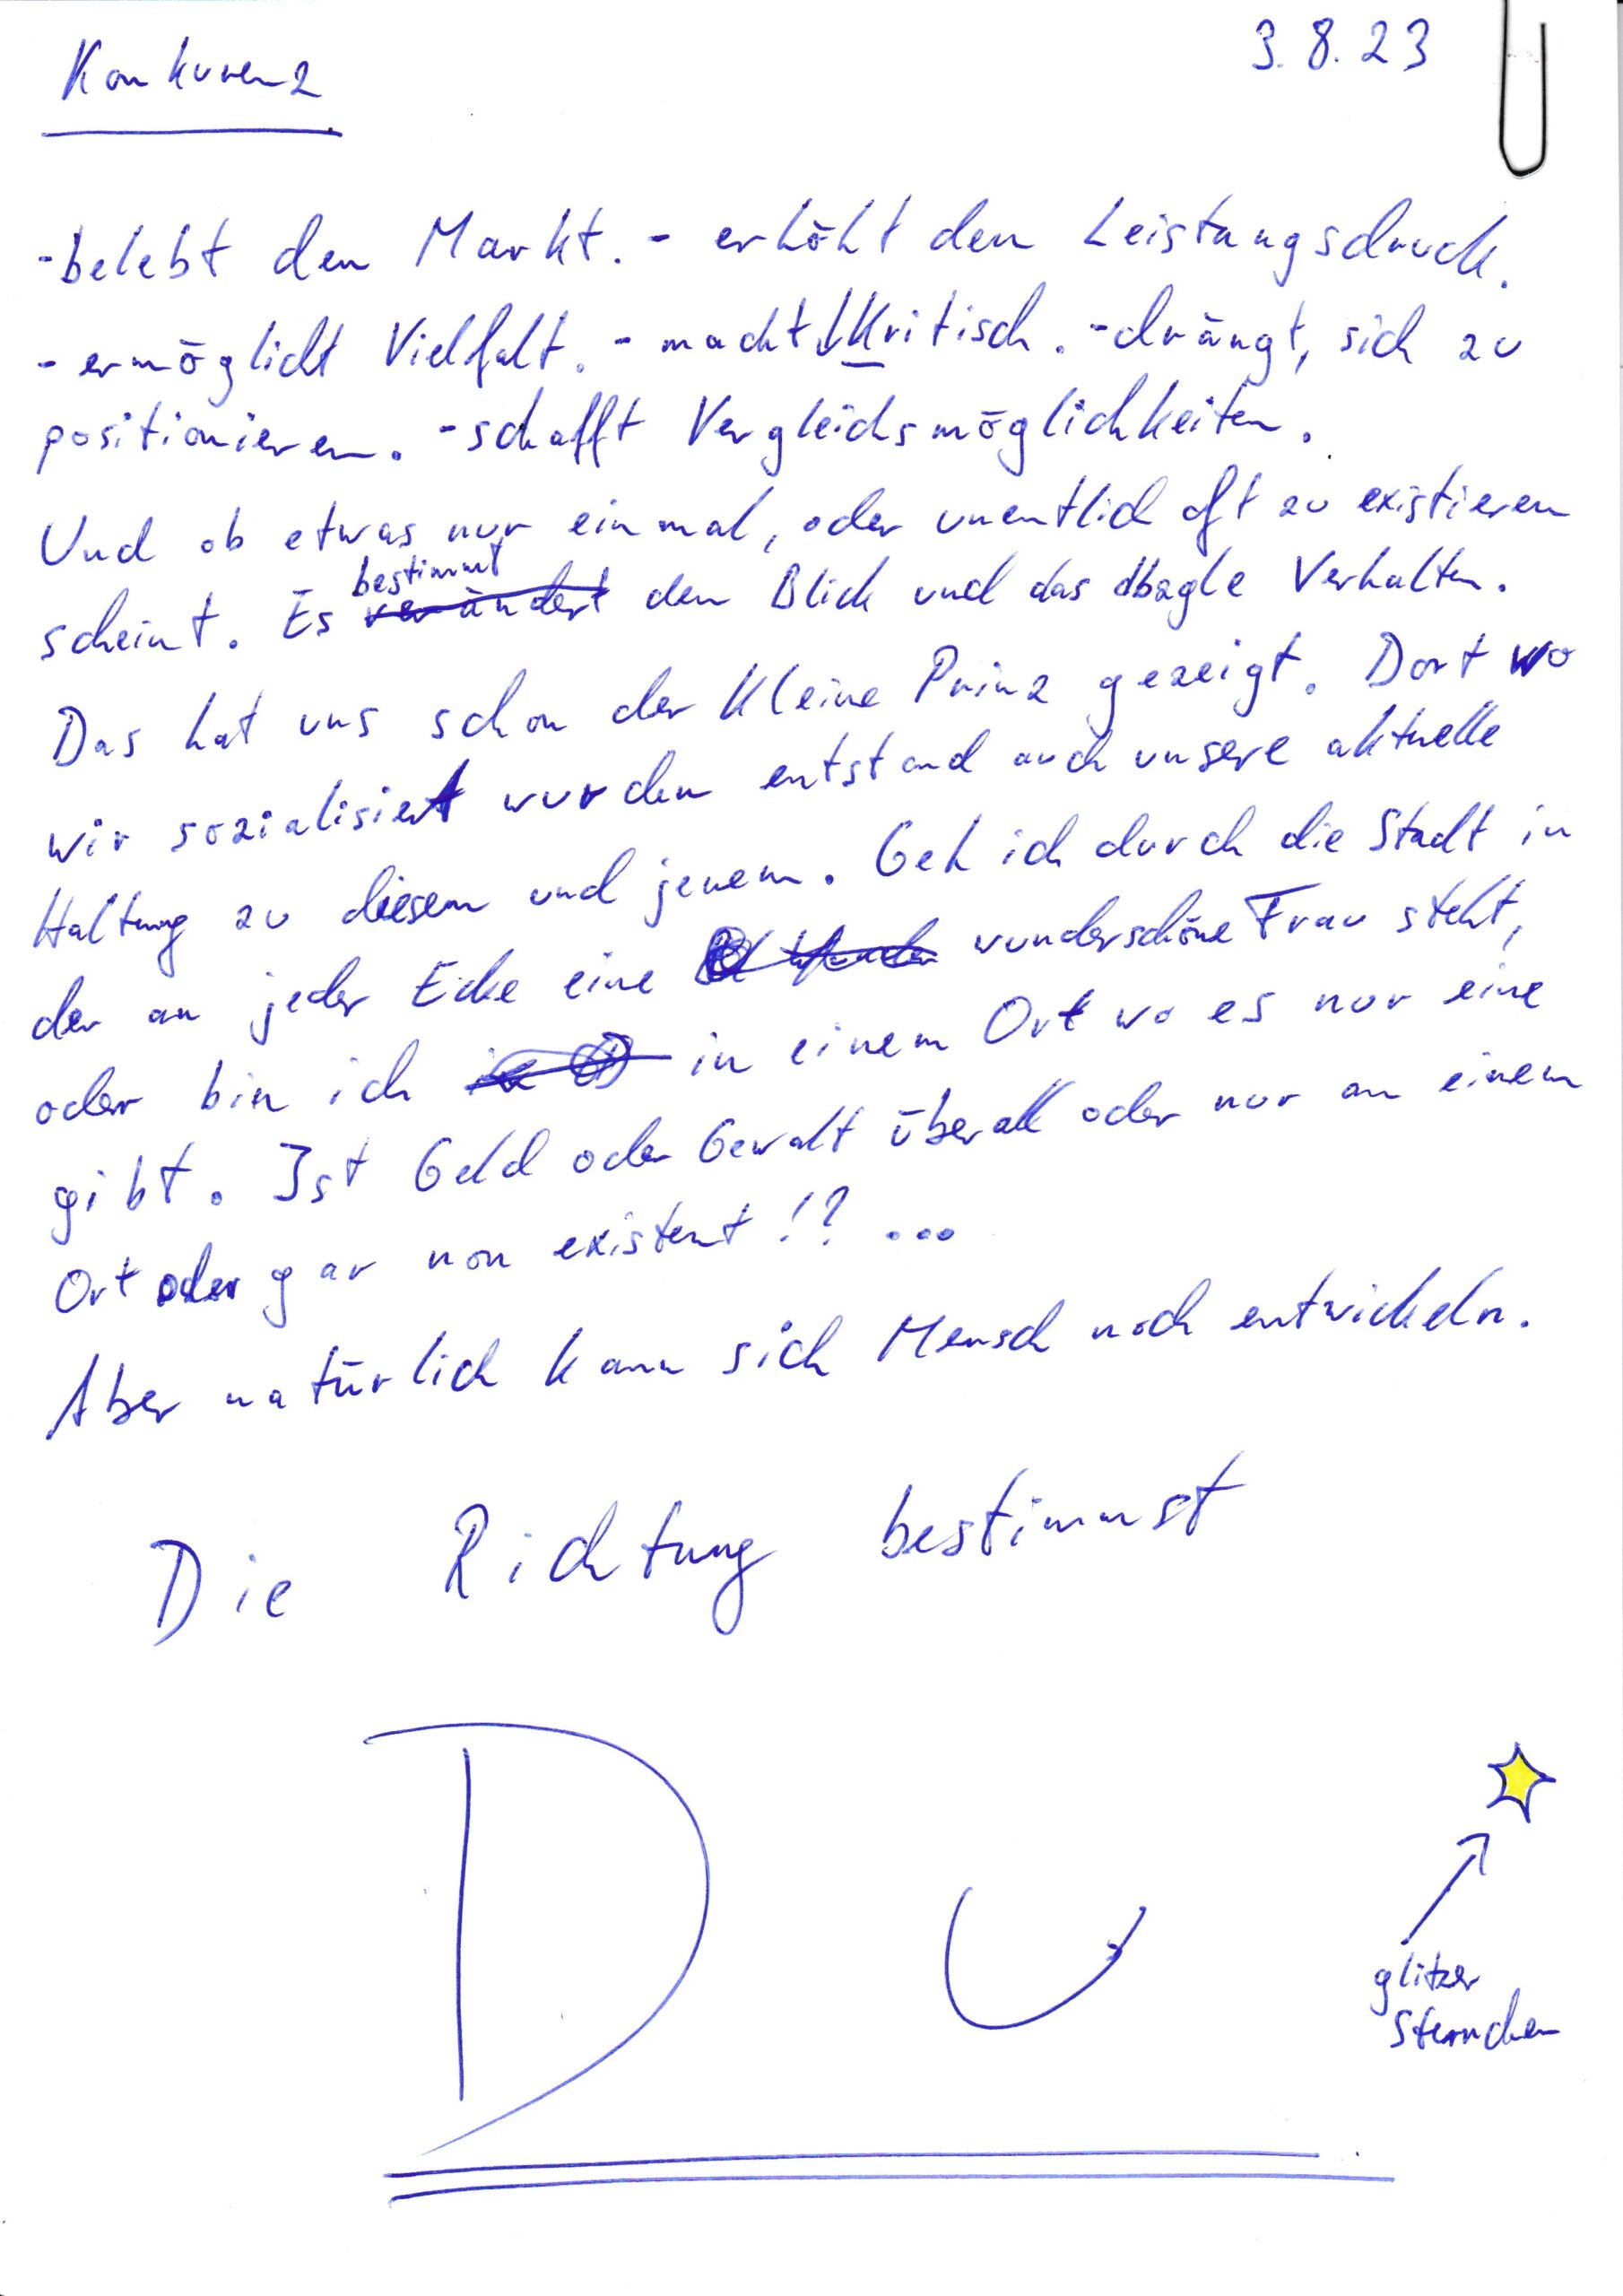 Konkurenz
3.8.23
-belebt den Markt. - erhöht den Leistungsdruck.
- ermöglicht Vielfalt. - macht kritisch. -drängt, sich zu
positionieren. -schafft Vergleichsmöglichkeiten.
Und ob etwas nur einmal, oder unentlich oft zu existieren
bestimmt
scheint. Es verändert den Blick und das dbzgle Verhalten.
Das hat uns schon der Kleine Prinz gezeigt. Dort wo
wir sozialisiert wurden entstand auch unsere aktuelle
Haltung zu diesem und jenem. Geh ich durch die Stadt in
der an jeder Ecke eine wunderschöne Frau steht,
oder bin ich in einem Ort wo es nur eine
gibt. Ist Geld oder Gewalt überall oder nur an einem
Ort oder gar non existent !? ...
Aber natürlich kann sich Mensch noch entwickeln.
Die Richtung bestimmst
Du
glitzer
Sternchen